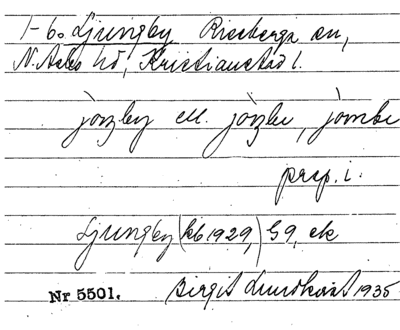 1-6. Ljungby Riseberga sn,
N. Åsbo hd, Kristianstad l.
jöŋby ell. jöŋbe, jömbe
prep. i.
Ljungby (kb 1929,) 59, ek
Nr 5501. Birgit Lundkvist 1935